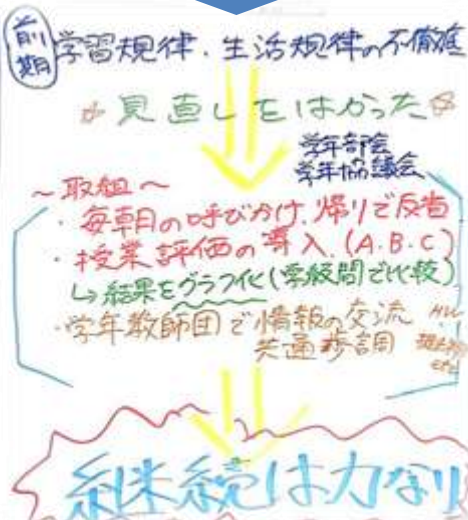 前期
学習規律・生活規律の不徹底
☆見直しをはかった☆
学年部会
学年協議会
〜取組〜
・毎朝の呼びかけ、帰りで反省
・授業評価の導入.(A・B・C)
↳結果をグラフ化(学級間で比較)
・学年教師団で情報の交流
共通歩調
etc
継続は力なり